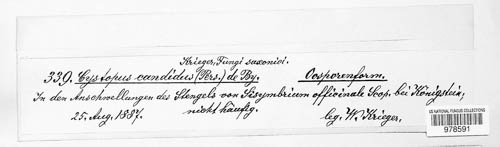 Krieger, Fungi saxonici.
339. Cystopus candidus (Pers.) de By. Oosporenform.
In den Anschwellungen des Stengels von Sisymbrium officinale Scop. bei Königstein,
25. Aug. 1887. nicht häufig. leg. W. Krieger,
US NATIONAL FUNGUS COLLECTIONS
978591